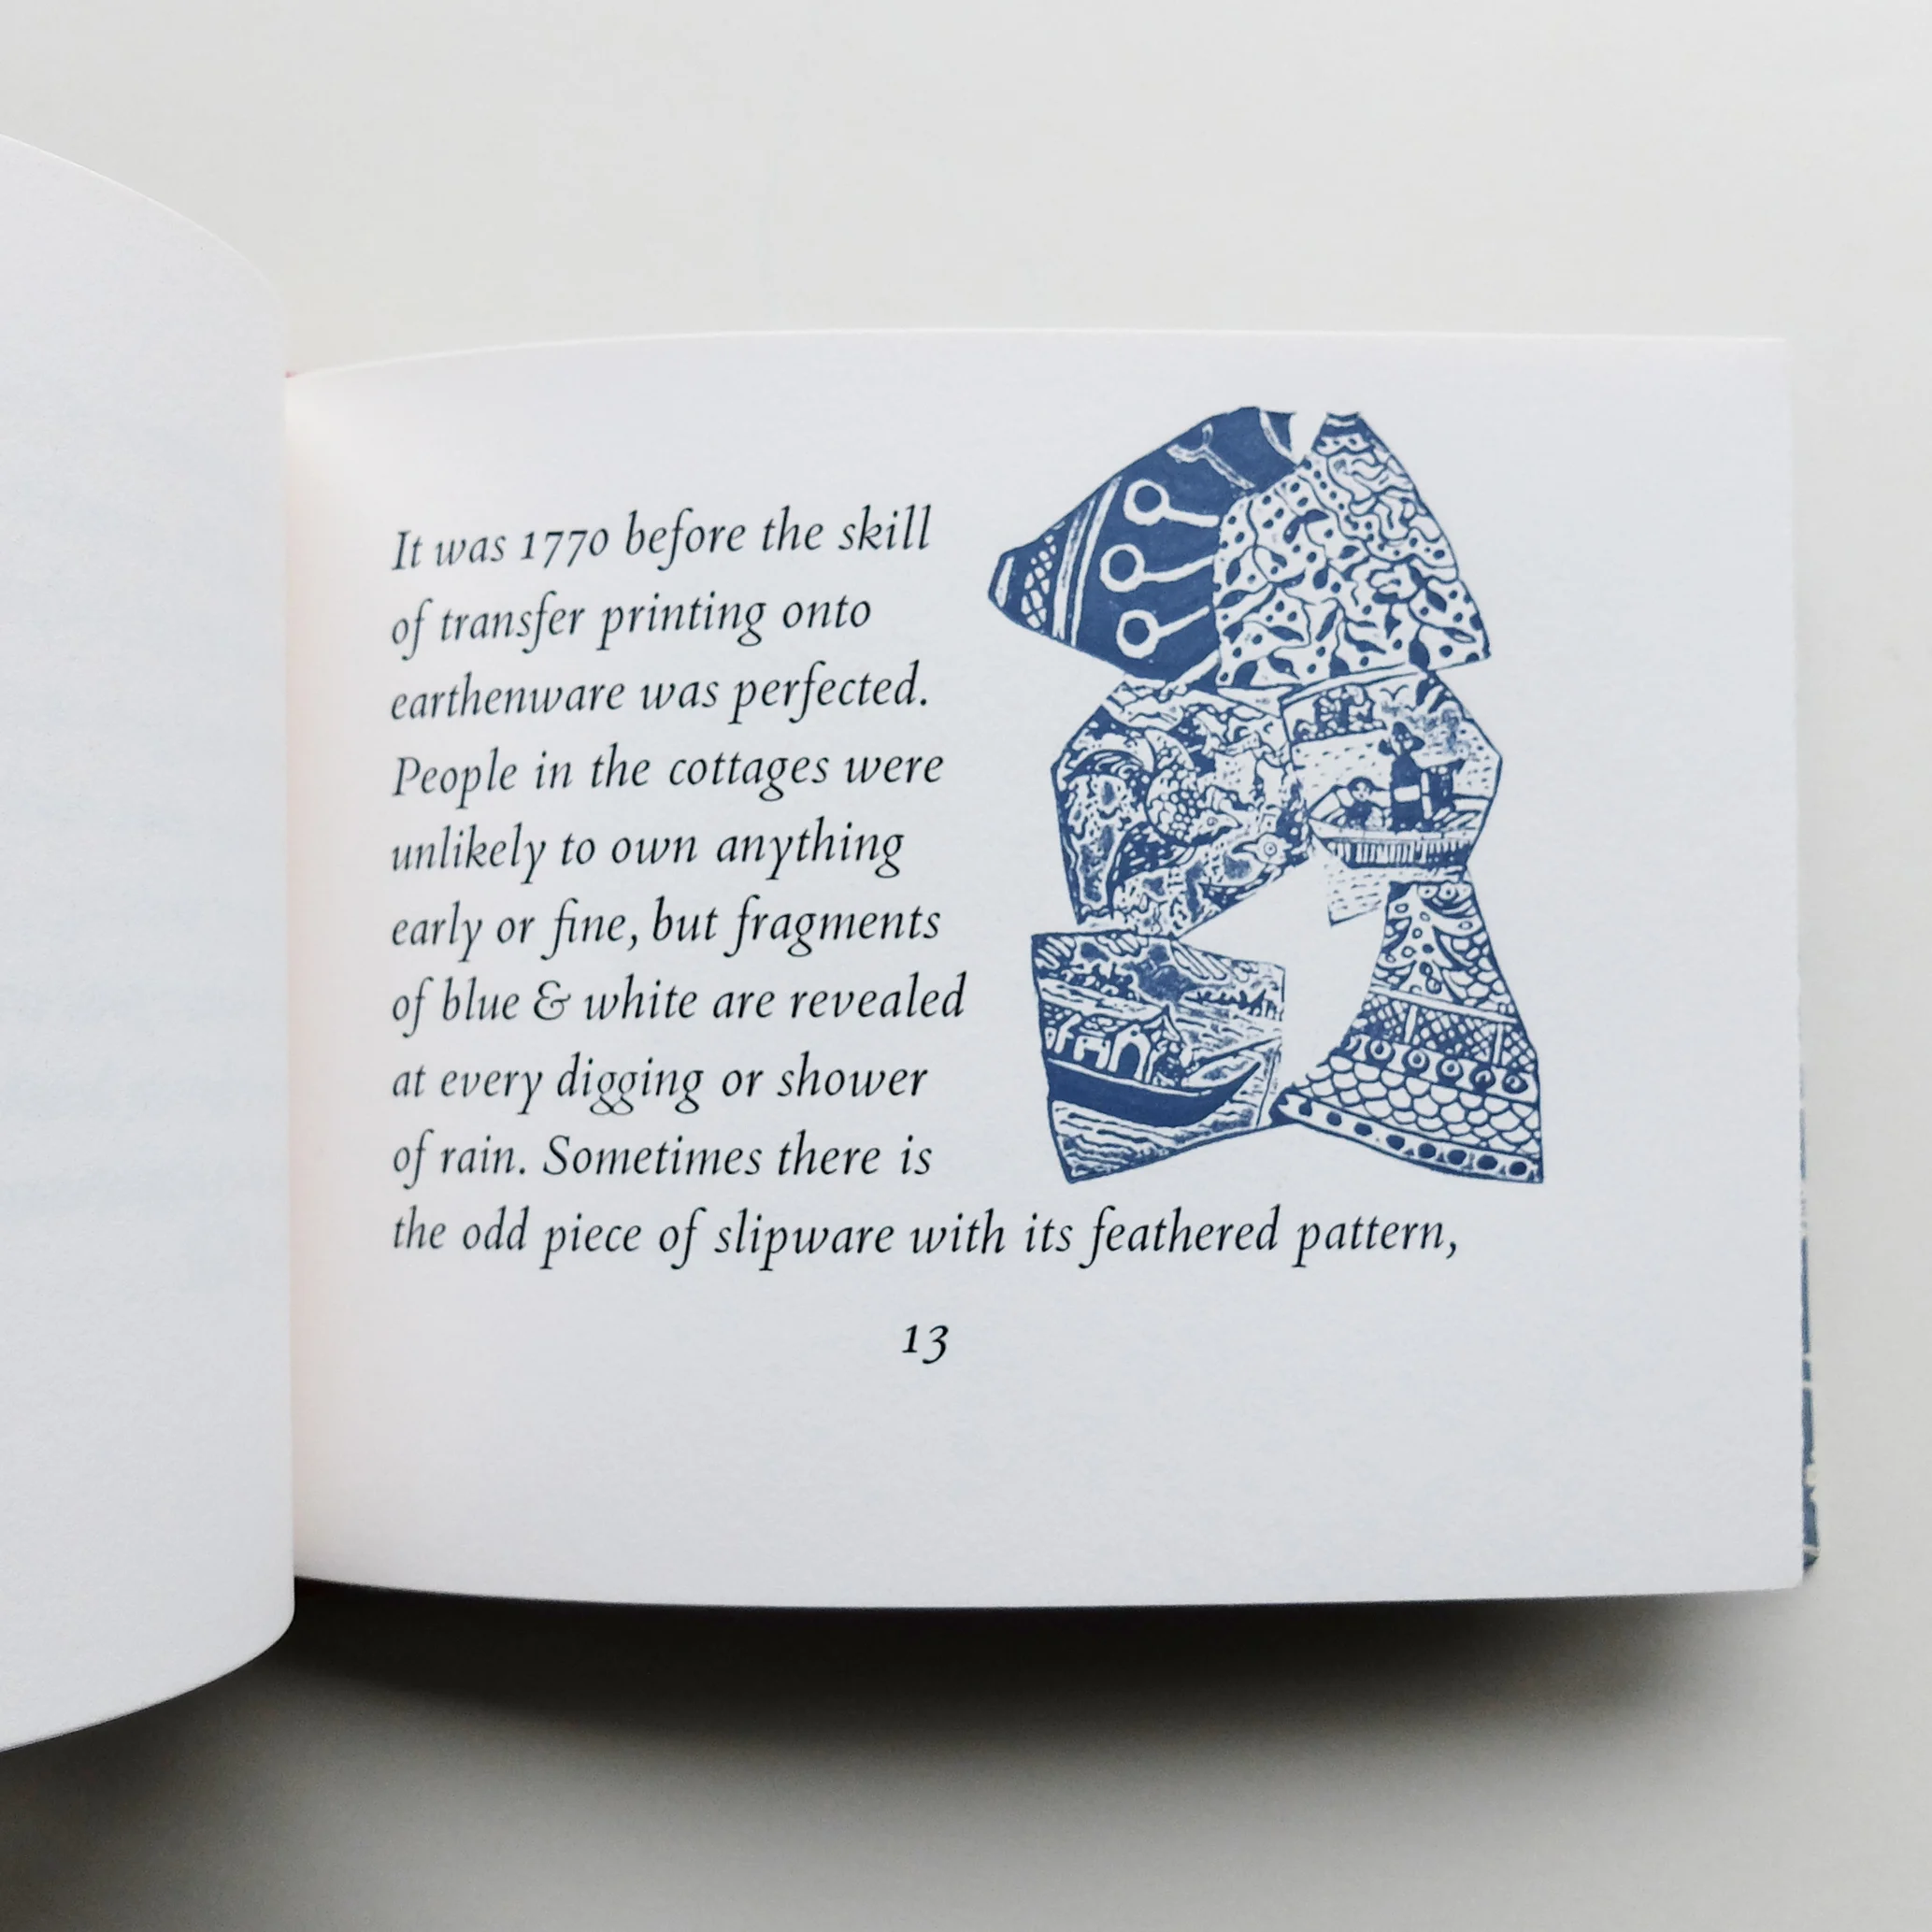 It was 1770 before the skill
of transfer printing onto
earthenware was perfected.
People in the cottages were
unlikely to own anything
early or fine, but fragments
of blue & white are revealed
at every digging or shower
of rain. Sometimes there is
the odd piece of slipware with its feathered pattern,
13